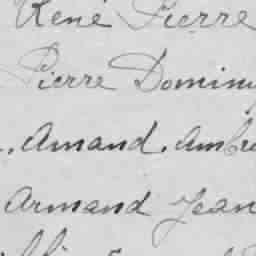 René Pierre
Pierre Domini
. Amand. Ambr
Armand Jean